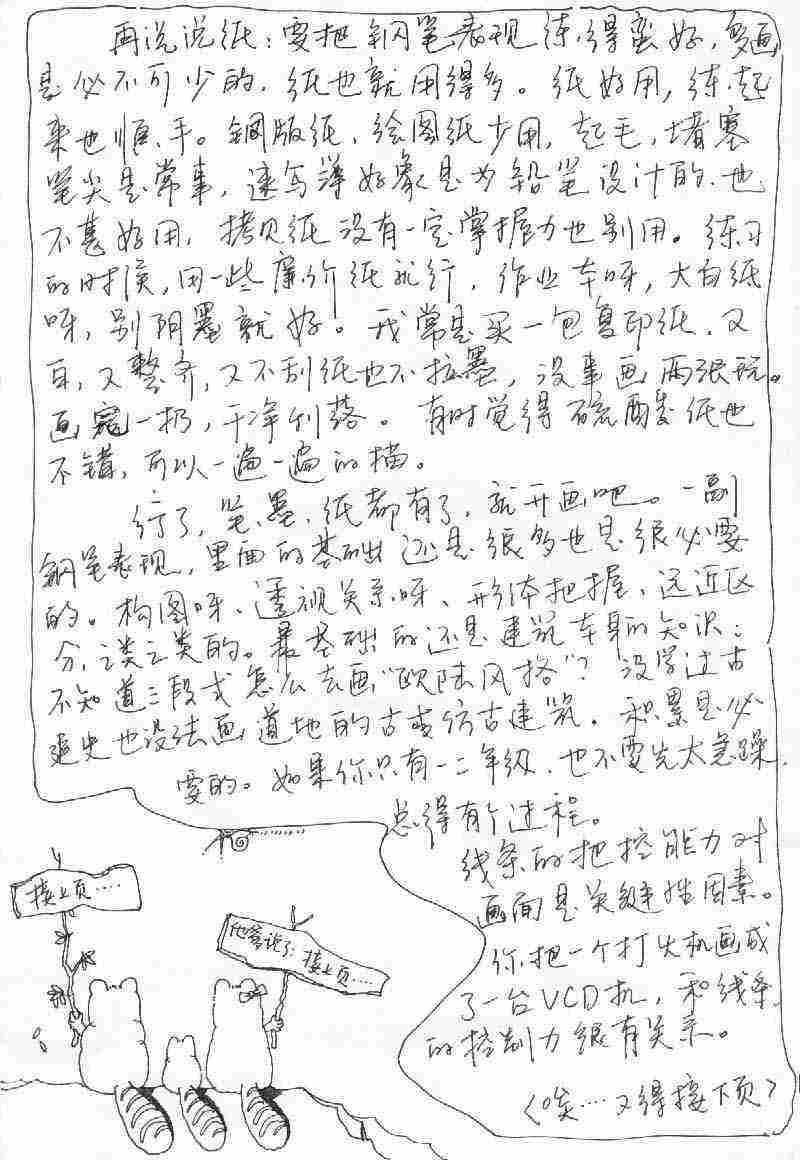 再说说纸：要把钢笔表现练得蛮好，多画
是必不可少的．纸也就用得多。纸好用，练起
来也顺手。铜版纸、绘图纸少用，起毛，堵塞
笔尖是常事，速写薄好象是为铅笔设计的．也
不甚好用，拷贝纸没有一定掌握力也别用。练习
的时候，用一些廉价纸就行，作业本呀，大白纸
呀，别阴墨就好。我常是买一包复印纸．又
白，又整齐，又不刮纸也不拉墨，没事画两张玩。
画完一扔，干净利落。有时觉得硫酸纸也
不错，可以一遍一遍的描。
行了，笔、墨、纸都有了，就开画吧。一副
钢笔表现，里面的基础还是很多也是很必要
的。构图呀、透视关系呀、形体把握、远近区
分，之类之类的。最基础的还是建筑本身的知识：
不知道三段式怎么去画“欧陆风格”？没学过古
建史也没法画道地的古或仿古建筑．积累是必
要的。如果你只有一二年级．也不要先太急躁．
总得有个过程。
线条的把控能力对
画面是关键性因素。
你把一个打火机画成
了一台VCD机，和线条
的控制力很有关系。
〈唉…又得接下页〉
接上页……
他害说了：接上页……